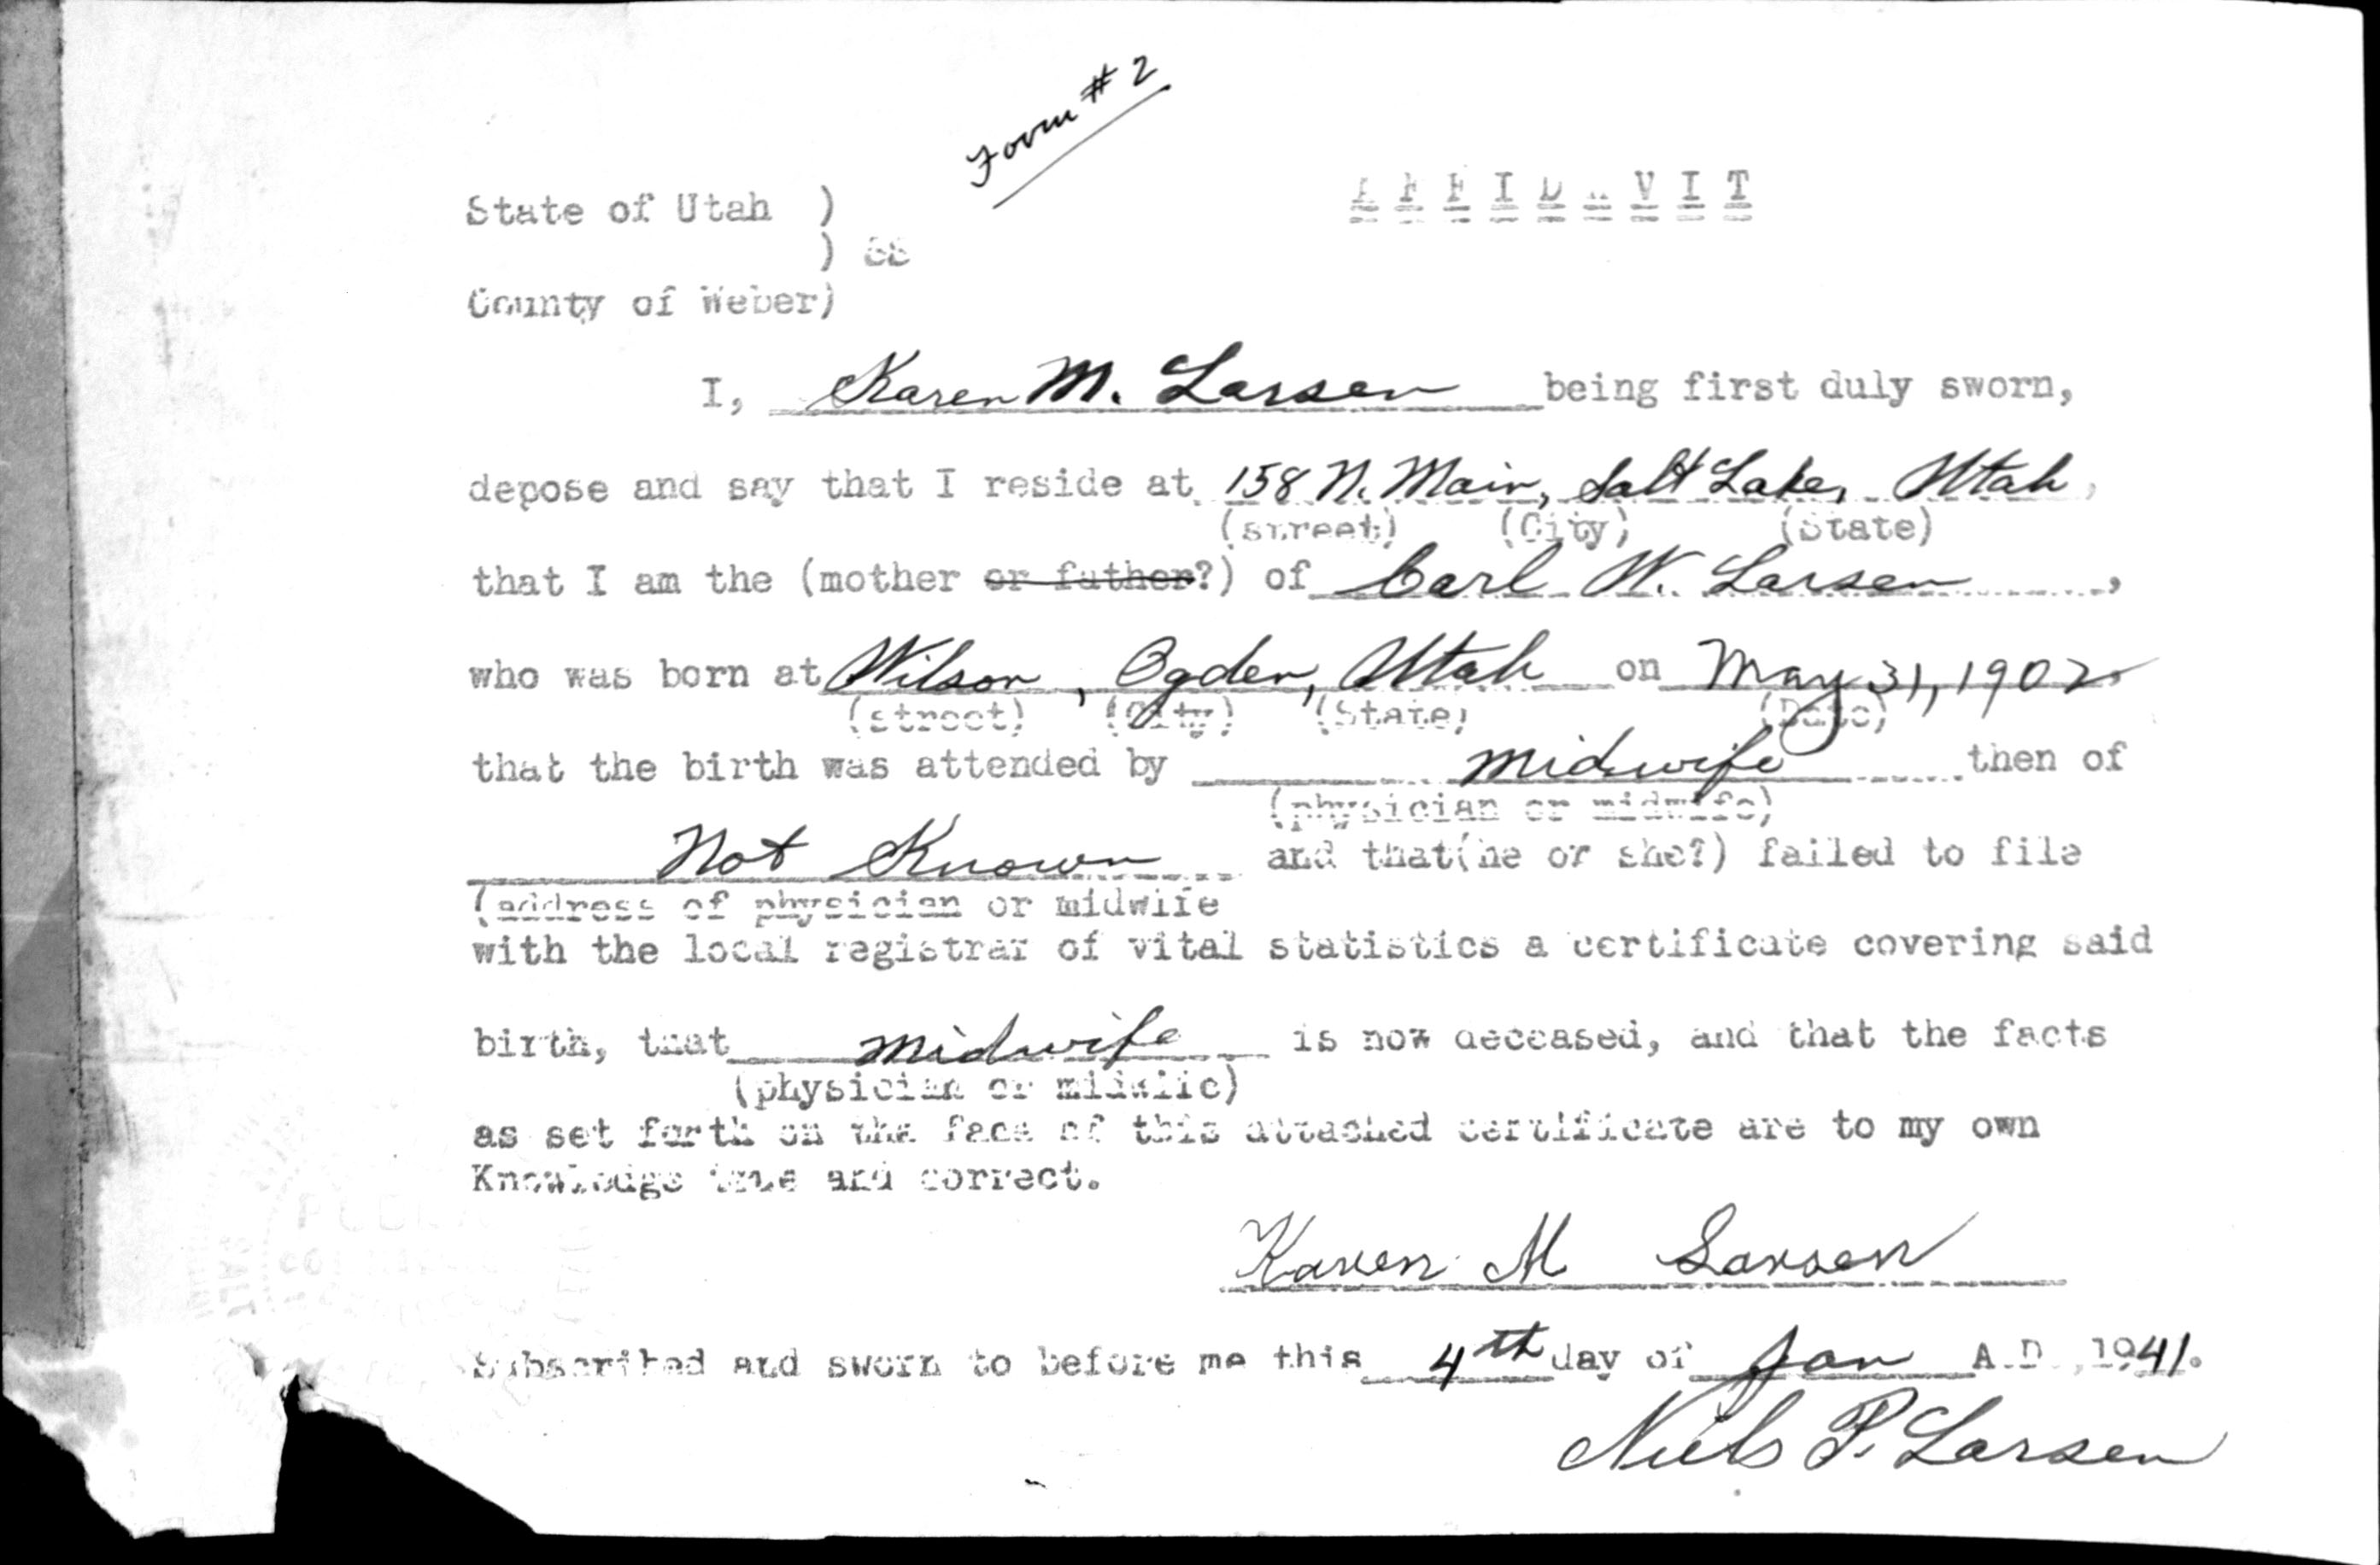 Form # 2
AFFIDAVIT
State of Utah )
) SS
County of Weber)
I, Karen M. Larsen being first duly sworn,
depose and say that I reside at 158 N. Main, Salt Lake, Utah,
(street) (City) (State)
that I am the (mother or father?) of Carl W. Larsen,
who was born at Wilson, Ogden, Utah on May 31, 1902
(street) (City) (State) (Date)
that the birth was attended by midwife then of
(physician or midwife)
Not Known and that(he or she?) failed to file
(address of physician or midwife
with the local registrar of vital statistics a certificate covering said
birth, that midwife is now deceased, and that the facts
(physician or midwife)
as set forth on the face of this attached certificate are to my own
Knowledge true and correct.
Karen M Larsen
Subscribed and sworn to before me this 4th day of Jan A.D., 1941.
Niels P. Larsen